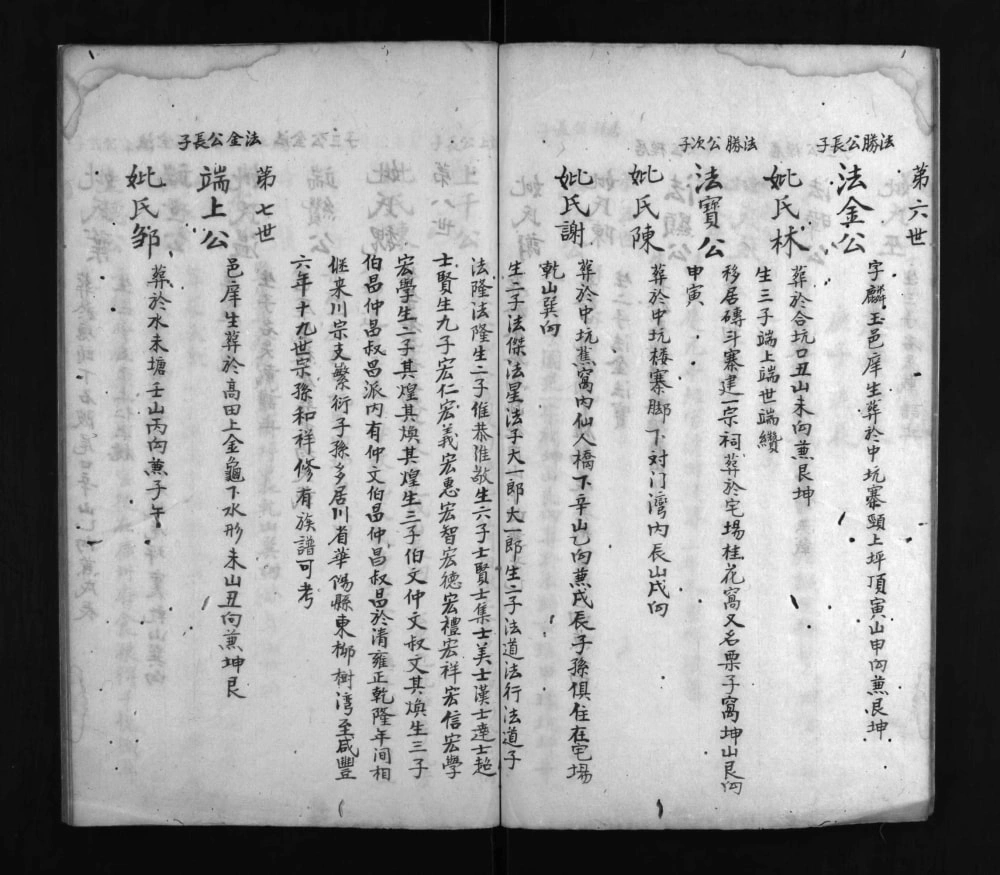 第六世
法勝公長子
法金公
字麟玉邑庠生葬於中坑寨頸上坪頂寅山申向兼艮坤
妣氏林
葬於合坑口丑山未向兼艮坤
生三子端上端世端纘
法勝公次子
法寶公
移居磚斗寨建一宗祠葬於宅場桂花窩又名栗子窩坤山艮向
申寅
妣氏陳
葬於中坑楼寨脚下対门湾内辰山戌向
妣氏謝
葬於中坑蕉窩内仙人橋下辛山乙向兼戌辰子孫俱住在宅場
乾山巽向
生二子法傑法星法子大一郎大一郎生二子法道法行法道子
法隆法隆生二子惟恭惟敬生六子士賢士集士美士漢士達士超
士賢生九子宏仁宏義宏惠宏智宏德宏禮宏祥宏信宏學
宏學生二子其煌其煥其煌生三子伯文仲文叔文其煥生三子
伯昌仲昌叔昌派内有仲文伯昌仲昌叔昌於清雍正乾隆年间相
继来川宗支繁衍子孫多居川省華陽縣東柳樹湾至咸豐
六年十九世宗孫和祥修有族譜可考
第七世
法金公長子
端上公
邑庠生葬於高田上金龜下水形未山丑向兼坤艮
妣氏邹
葬於水未塘壬山丙向兼子午